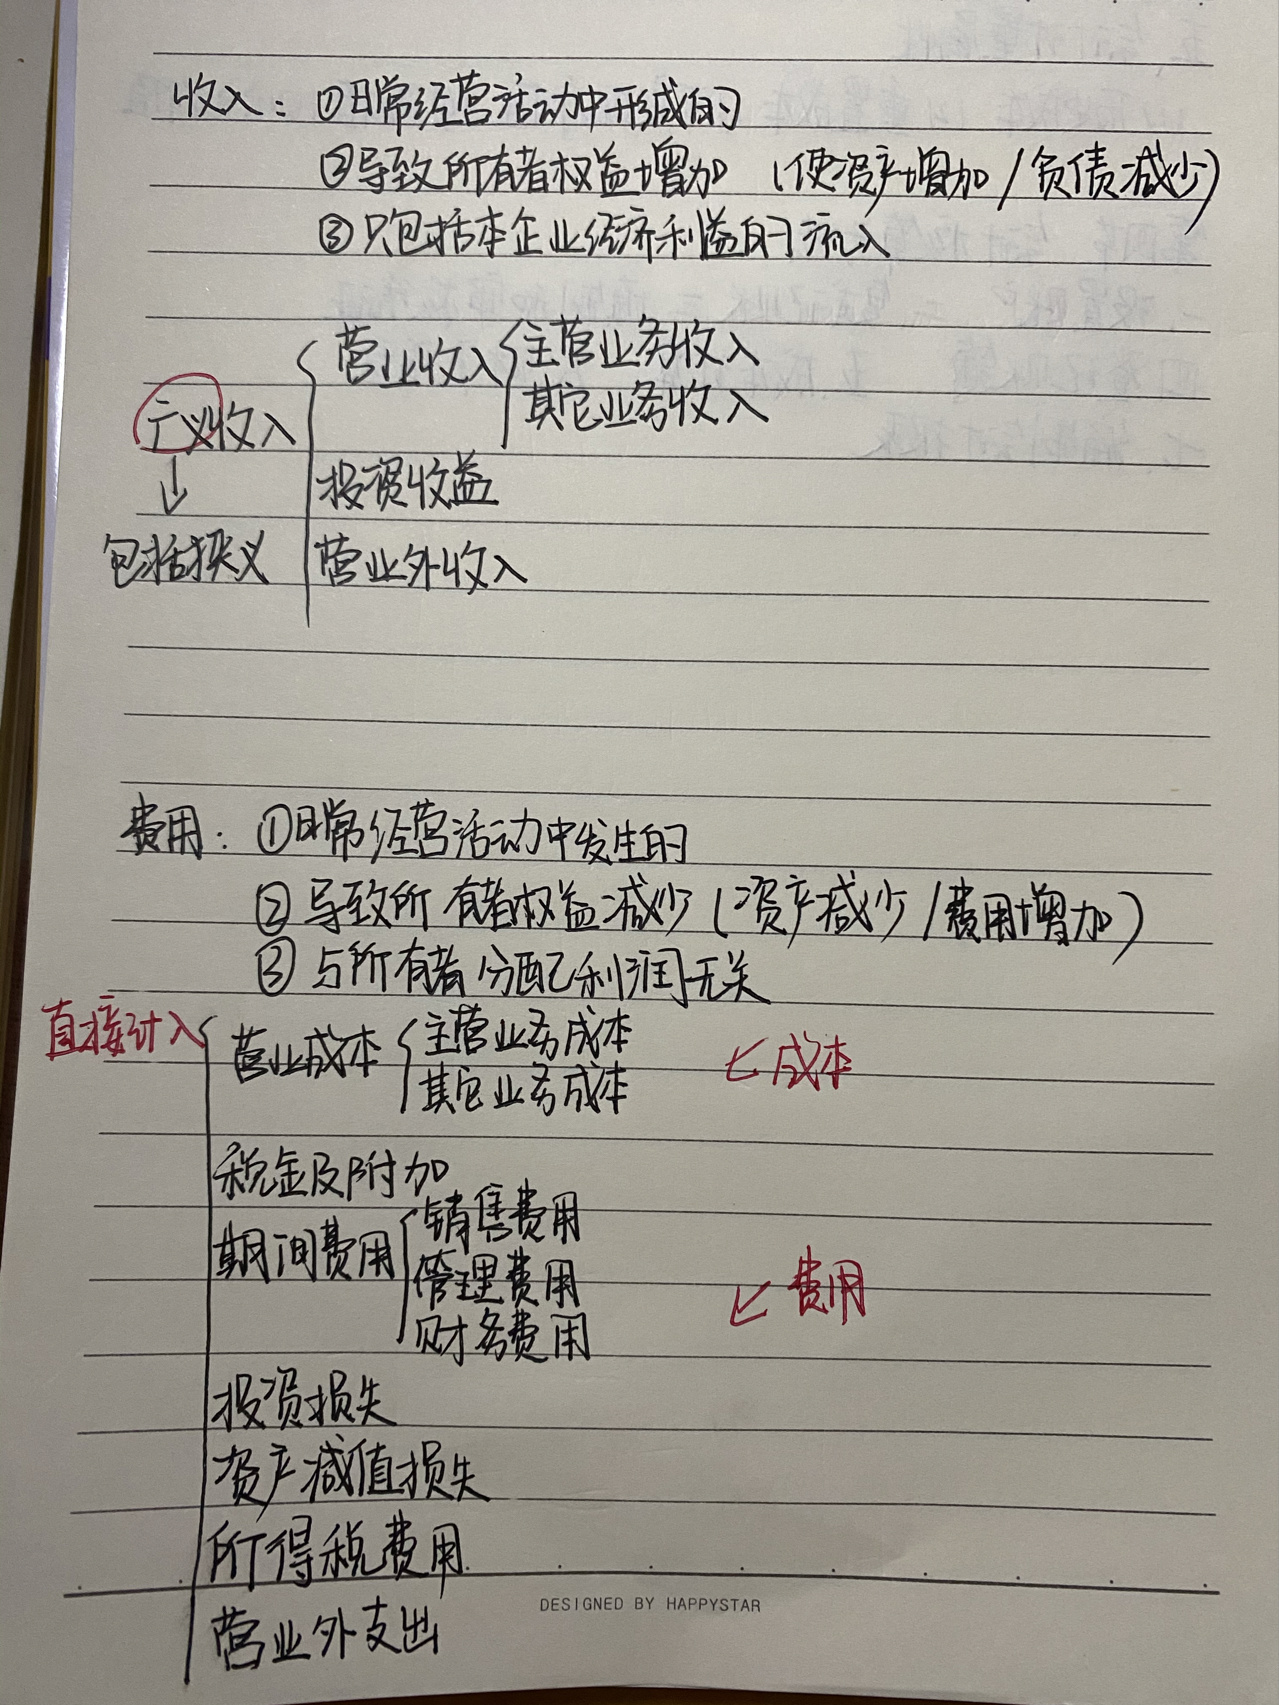 收入：①日常经营活动中形成的
②导致所有者权益增加（使资产增加/负债减少）
③只包括本企业经济利益的流入
营业收入 主营业务收入
其它业务收入
广义收入
↓
投资收益
包括狭义
营业外收入
费用：①日常经营活动中发生的
②导致所有者权益减少（资产减少/费用增加）
③与所有者分配利润无关
直接计入
营业成本 主营业务成本
其它业务成本
←成本
税金及附加
期间费用 销售费用
管理费用
财务费用
←费用
投资损失
资产减值损失
所得税费用
营业外支出
DESIGNED BY HAPPYSTAR